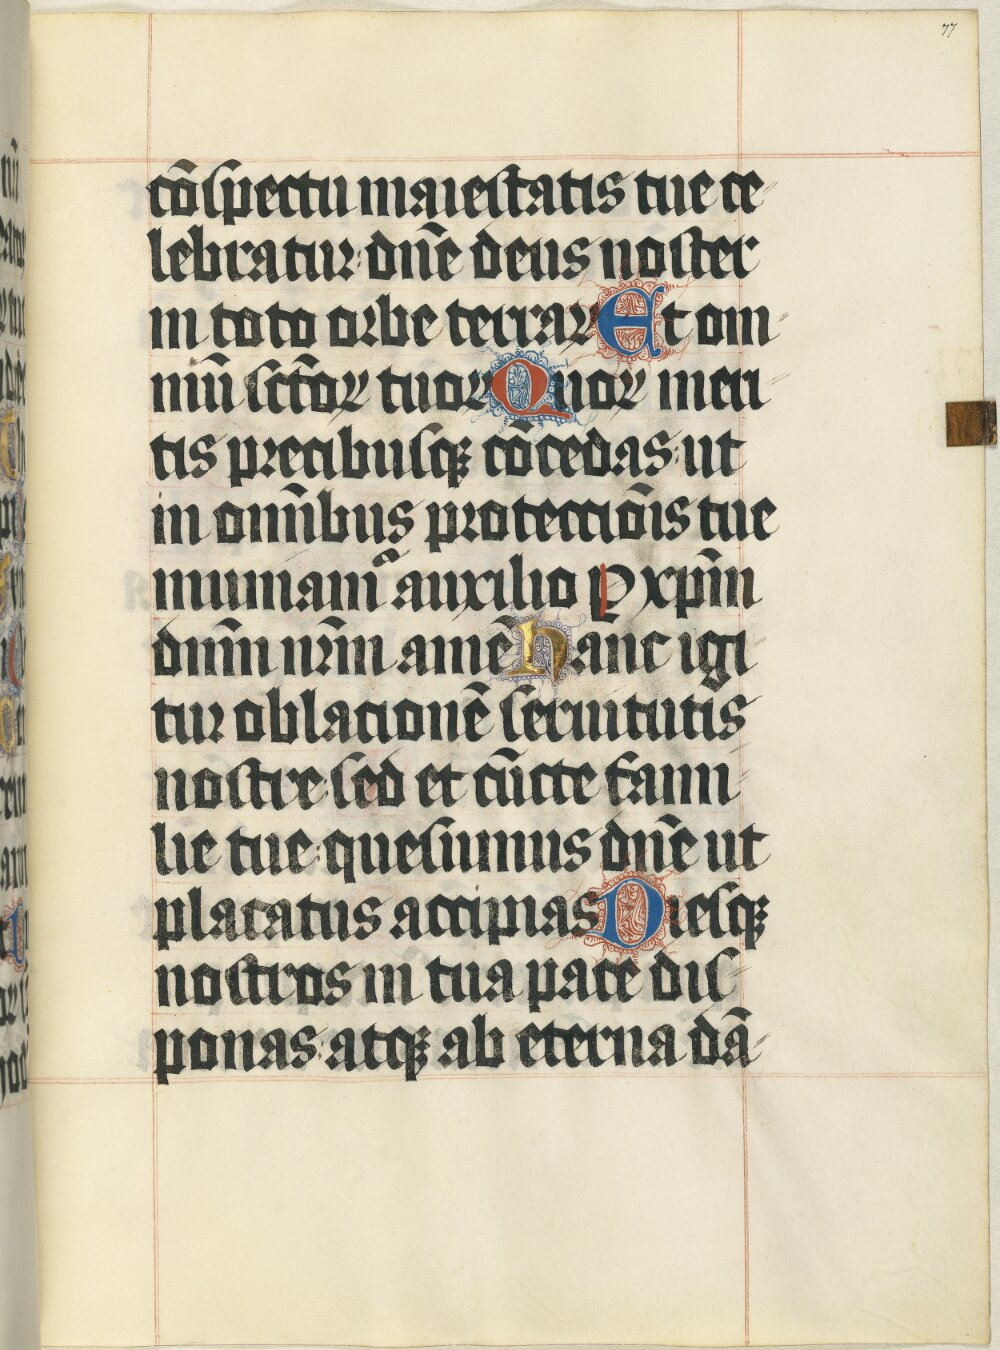 77
cōspectu maiestatis tue ce
lebratur: dn̄e deus noster
in toto orbe terrarꝝ Et om
niū sc̄tōꝝ tuorꝝ Quoꝝ meri
tis precibusqꝫ cōcedas: ut
in omn̄ibus protectiōis tue
muniamᷣ auxilio P xp̄m
dn̄m nr̄m amē Hanc igi
tur oblationē seruitutis
nostre: sed et cūcte fami
lie tue: quesumus dn̄e ut
placatus accipias Diesqꝫ
nostros in tua pace dis
ponas: atqꝫ ab eterna dā